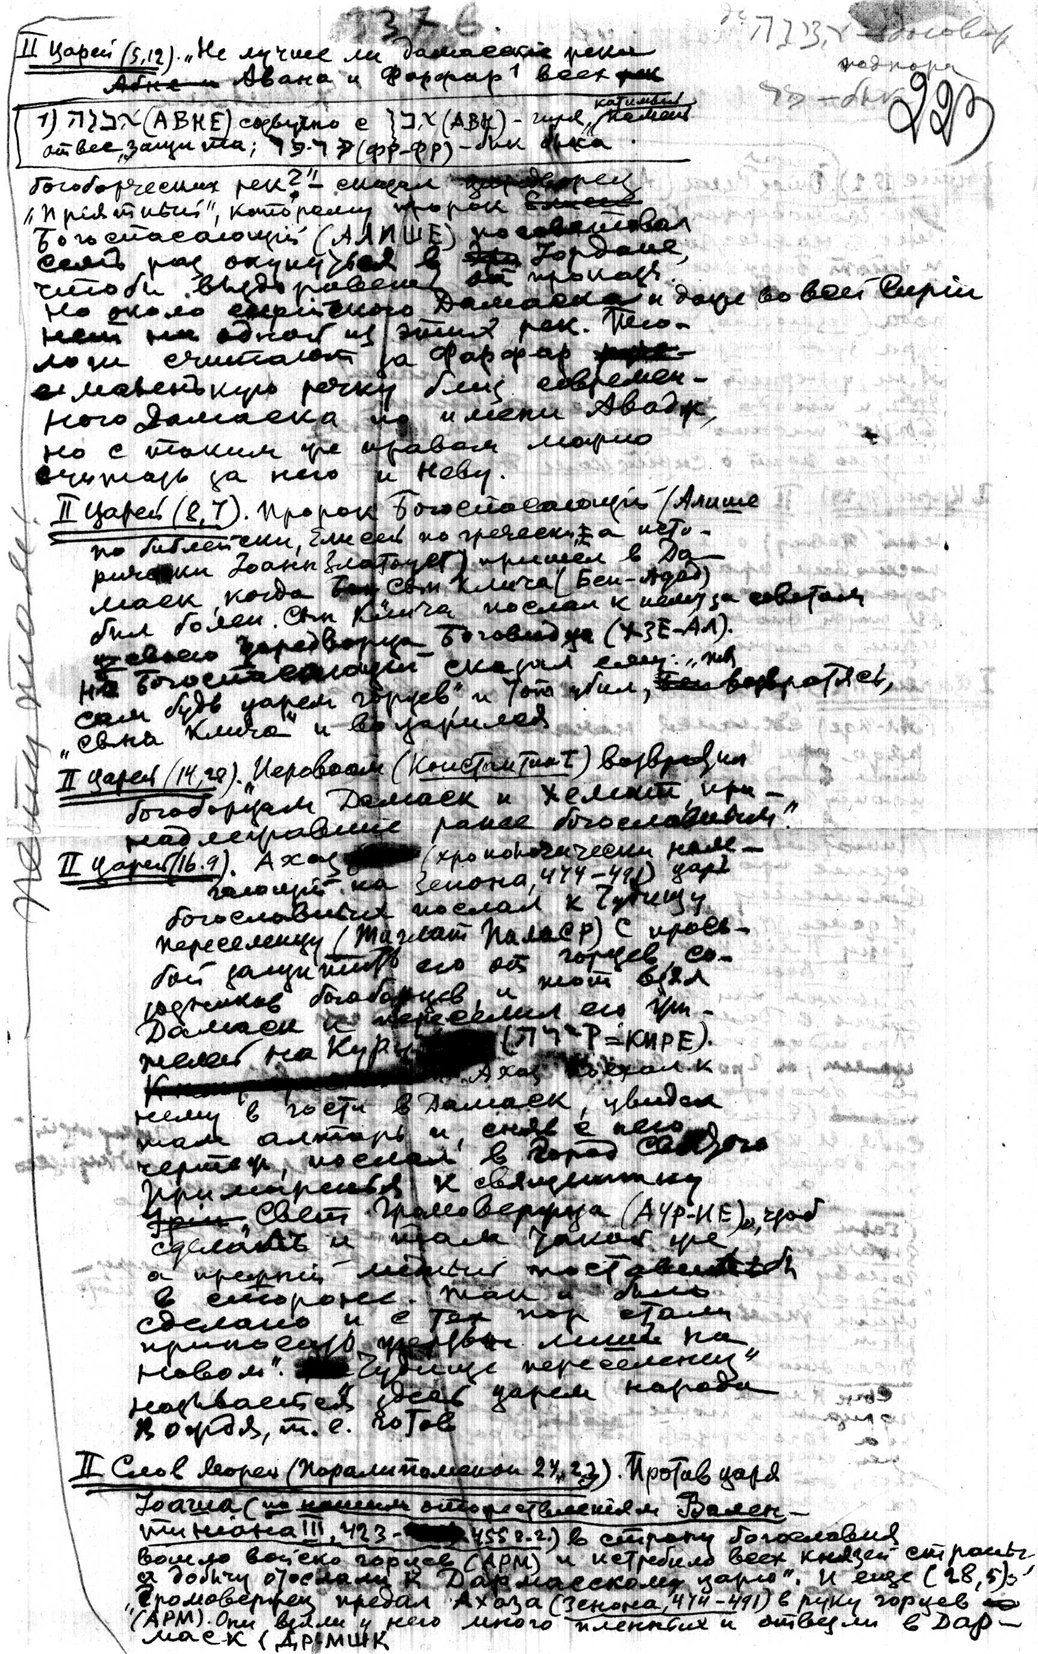 337 б.
223
II Царей (5,12). „Не лучше ли дамасские реки
Авана и Фарфар¹ всех рек
1) אבנה (АВНЕ) созвучно с אבן (АВН) – гиря, каменный
отвес, защита; פר-פר (ФР-ФР) – бык быка
богоборческих рек?" – сказал царедворец
„Приятный", которому пророк
Богоспасающий (АЛИШЕ) посоветовал
семь раз окунуться в Iордане,
чтобы выздороветь от проказы.
Но около сирийского Дамаска и даже во всей Сирии
нет ни одной из этих рек. Тео-
логи считают за Фарфар
маленькую речку близ современ-
ного Дамаска по имени Авадж,
но с таким же правом можно
считать за него и Неву.
II Царей (8,7). Пророк Богоспасающий (Алише
по библейски, Елисей по гречески, а исто-
рически Iоанн Златоуст) пришел в Да-
маск, когда Сын Клича (Бен-Адад)
был болен. Сын Клича послал к нему за советом
своего царедворца Боговидца (ХЗЕ-АЛ).
Но Богоспасающий сказал ему:
сам будь царем горцев" и тот убил, возвратясь,
„сына Клича" и воцарился
II Царей (14,28). Иеровоам (Константин I) возвратил
богоборцам Дамаск и Хемат, при-
надлежавшие ранее богославным."
II Царей (16.9). Ахаз (хронологически нале-
гающий на Зенона, 474–491) царь
богославных послал к Чудищу
переселенцу (Тиглат Паласр) с прось-
бой защитить его от горцев, со-
юзников богоборцев, и тот взял
Дамаск и переселил его жи-
телей на Куру (קירה = КИРЕ).
„Ахаз поехал к
нему в гости в Дамаск, увидел
там алтарь и, сняв с него
чертеж, послал в Город Святого
Примирения к священнику
Свет Громовержца (АУР-ИЕ), чтоб
сделать и там такой же,
а прежний медный поставить
в стороне. Так и было
сделано и с тех пор стали
приносить жертвы лишь на
новом". „Чудище переселенец"
называется здесь царем народа
т.е. готов
II Слов Дней (Паралипоменон 24,23). Против царя
Iоаша (по нашим отождествлениям Вален-
тиниана III, 423–455 г.г.) в страну богославия
вошло войско горцев (АРМ) и истребило всех князей страны,
а добычу отослали к Дармасскому царю". И еще (28,5):
„Громовержец предал Ахаза (Зенона, 474–491) в руку горцев
(АРМ). Они взяли у него много пленных и отвели в Дар-
маск (ДРМШК